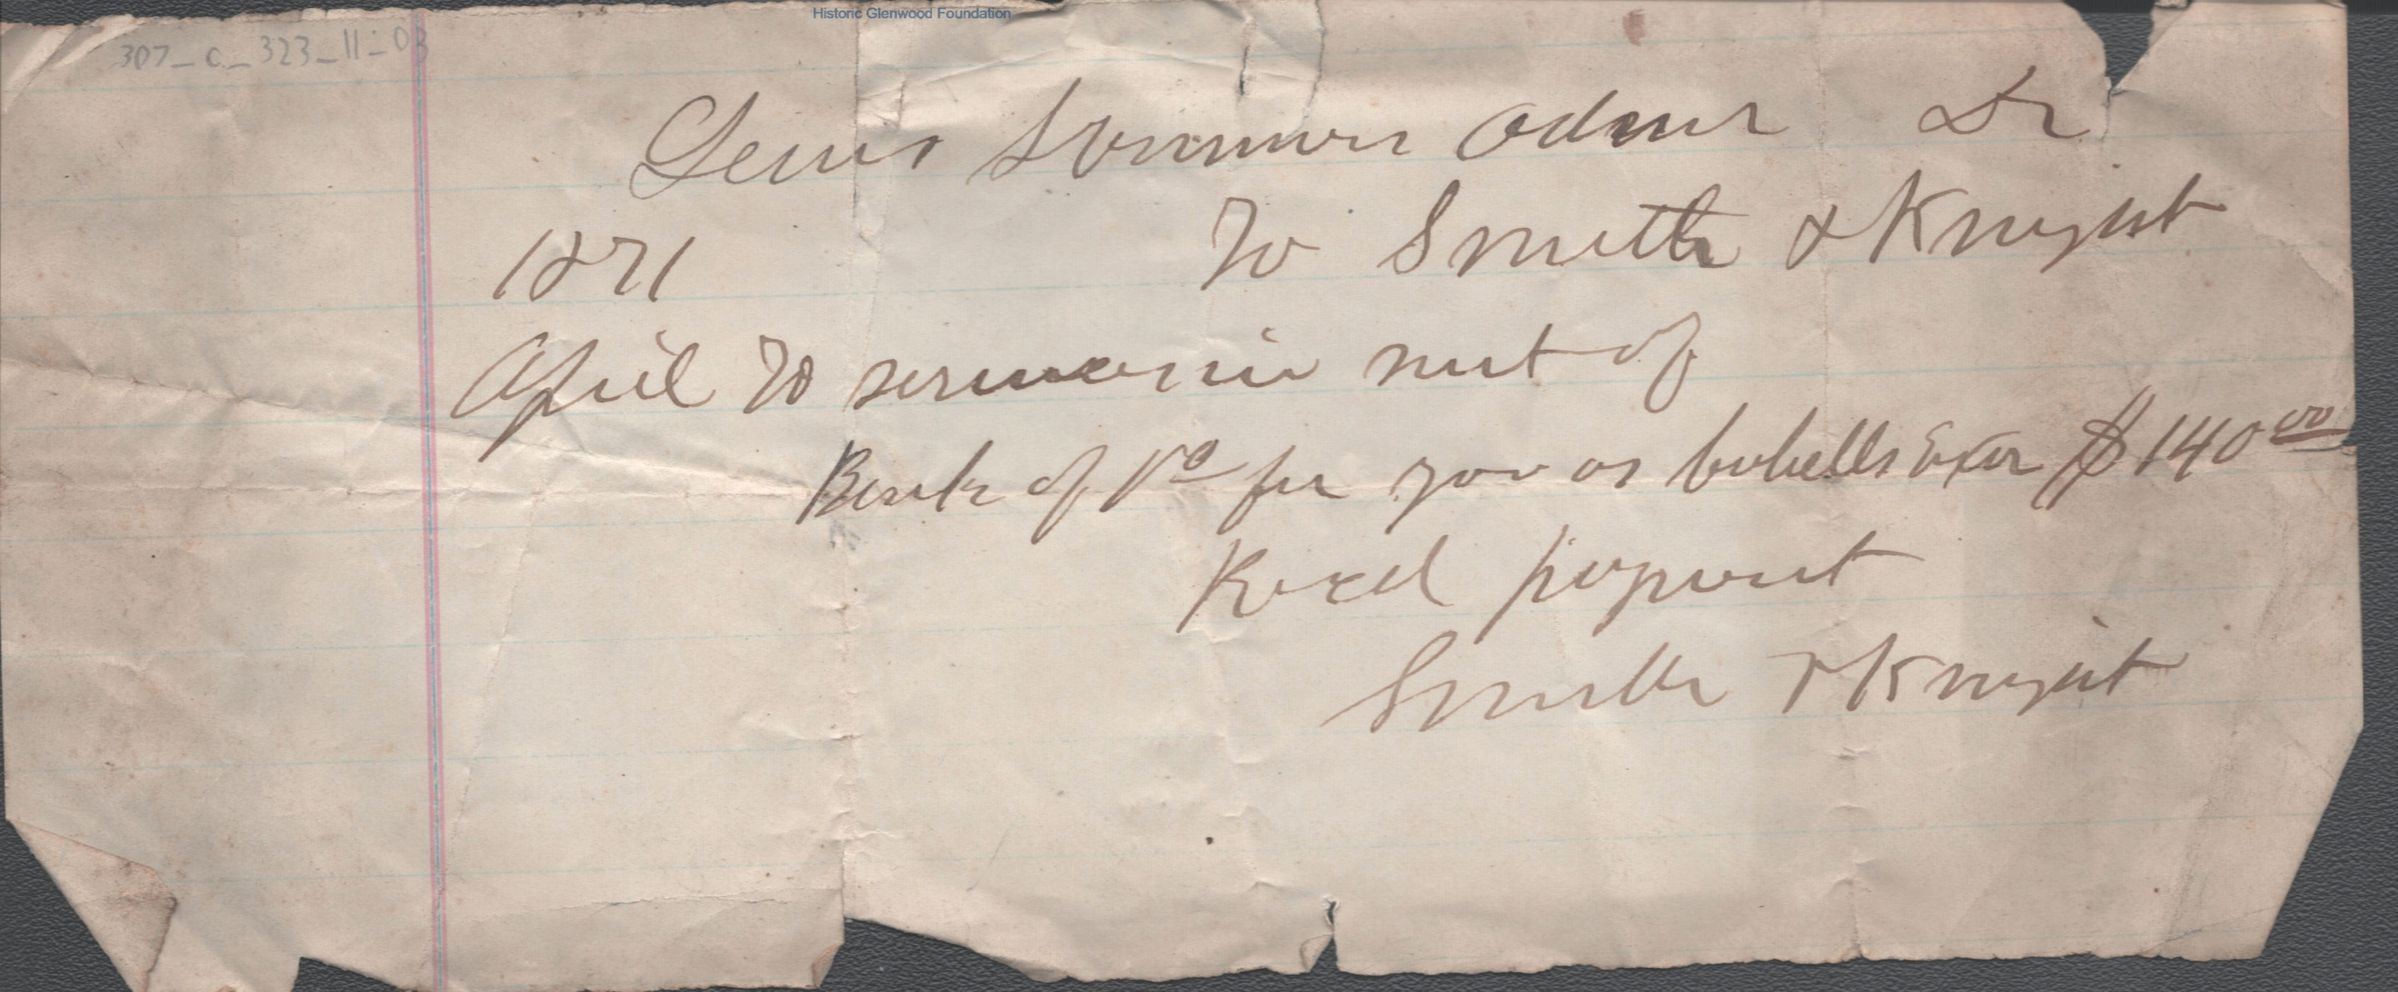 Historic Glenwood Foundation
307_C_323_11_03
Lewis Admr Dr
1871 To Smith & Knight
April To services in suit of
Bank of Va for you as Exor $140.00
Recd payment
Smith & Knight